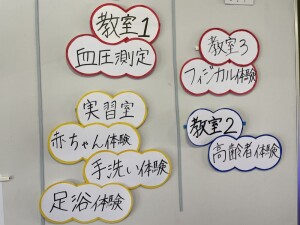 教室1
血圧測定
実習室
赤ちゃん体験
手洗い体験
足浴体験
教室3
フィジカル体験
教室2
高齢者体験